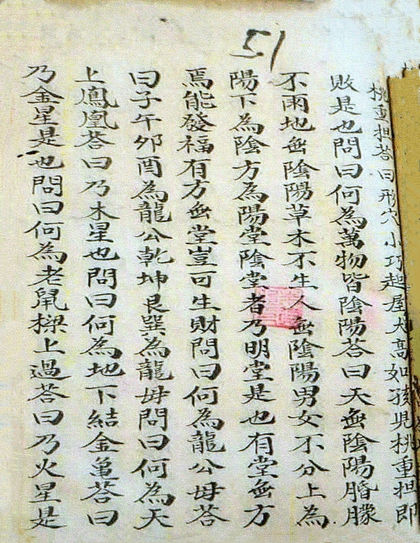 51
挑重担答曰形穴小巧起屋大高如孩兒挑重担即
敗是也問曰何為萬物皆陰陽答曰天無陰陽朦
不雨地無陰陽草木不生人無陰陽男女不分上為
陽下為陰方為陽堂陰堂者乃明堂是也有堂無方
焉能發福有方無堂豈可生財問曰何為龍公母答
曰子午卯酉為龍公乾坤艮巽為龍母問曰何為天
上鳳凰答曰乃木星也問曰何為地下結金龜答曰
乃金星是也問曰何為老鼠樑上過答曰乃火星是